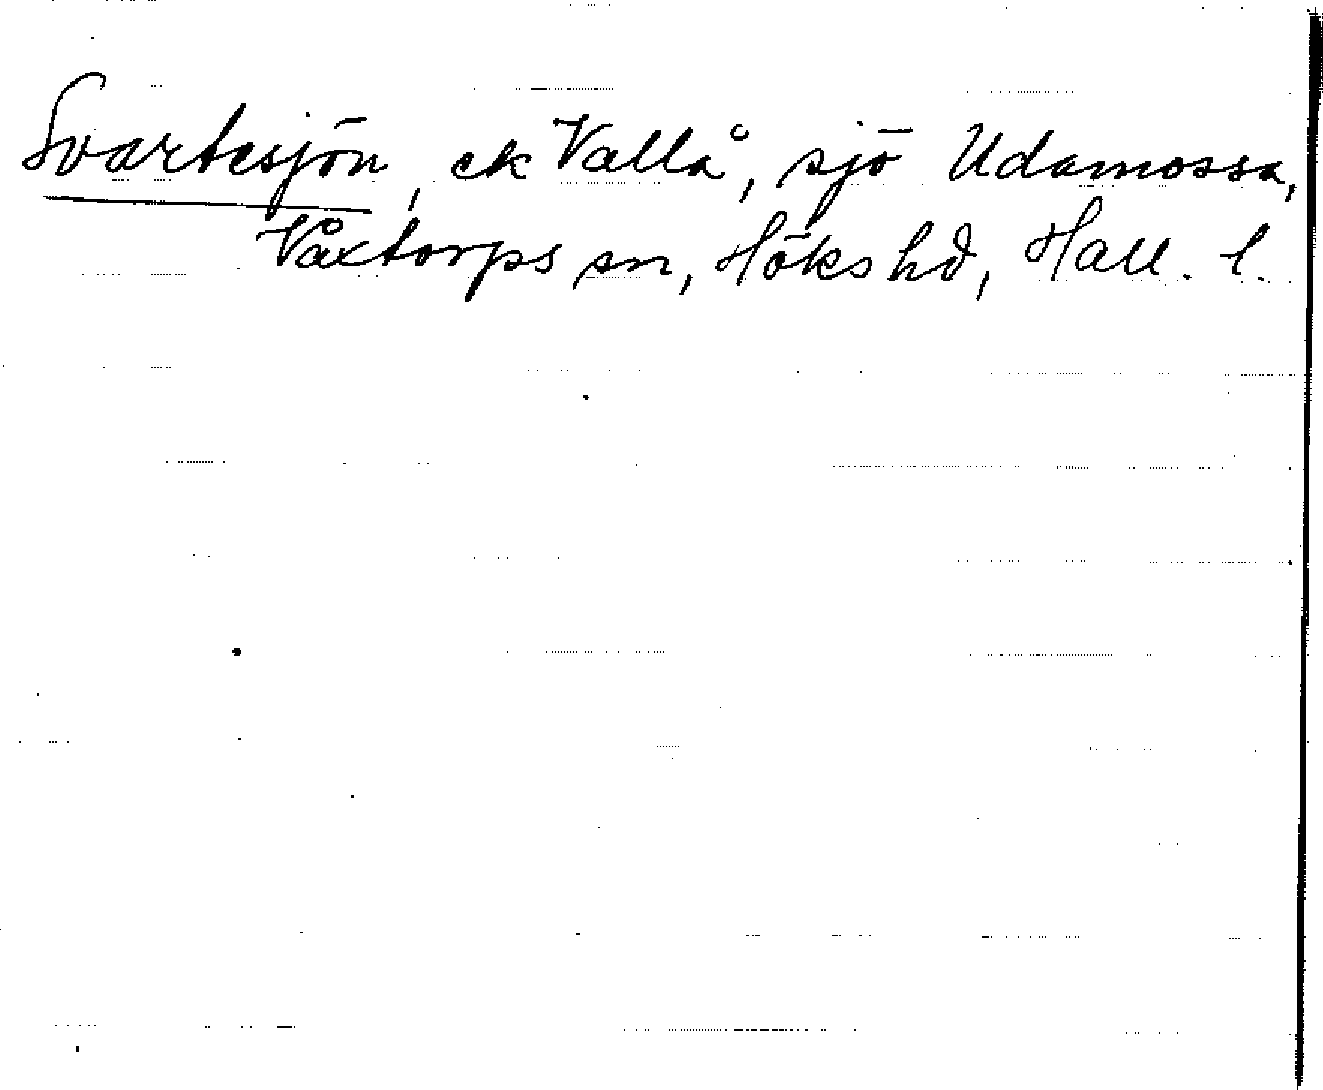 Svartesjön, ek Vallå, sjö Udamossa,
Våxtorps sn, Höks hd, Hall. l.